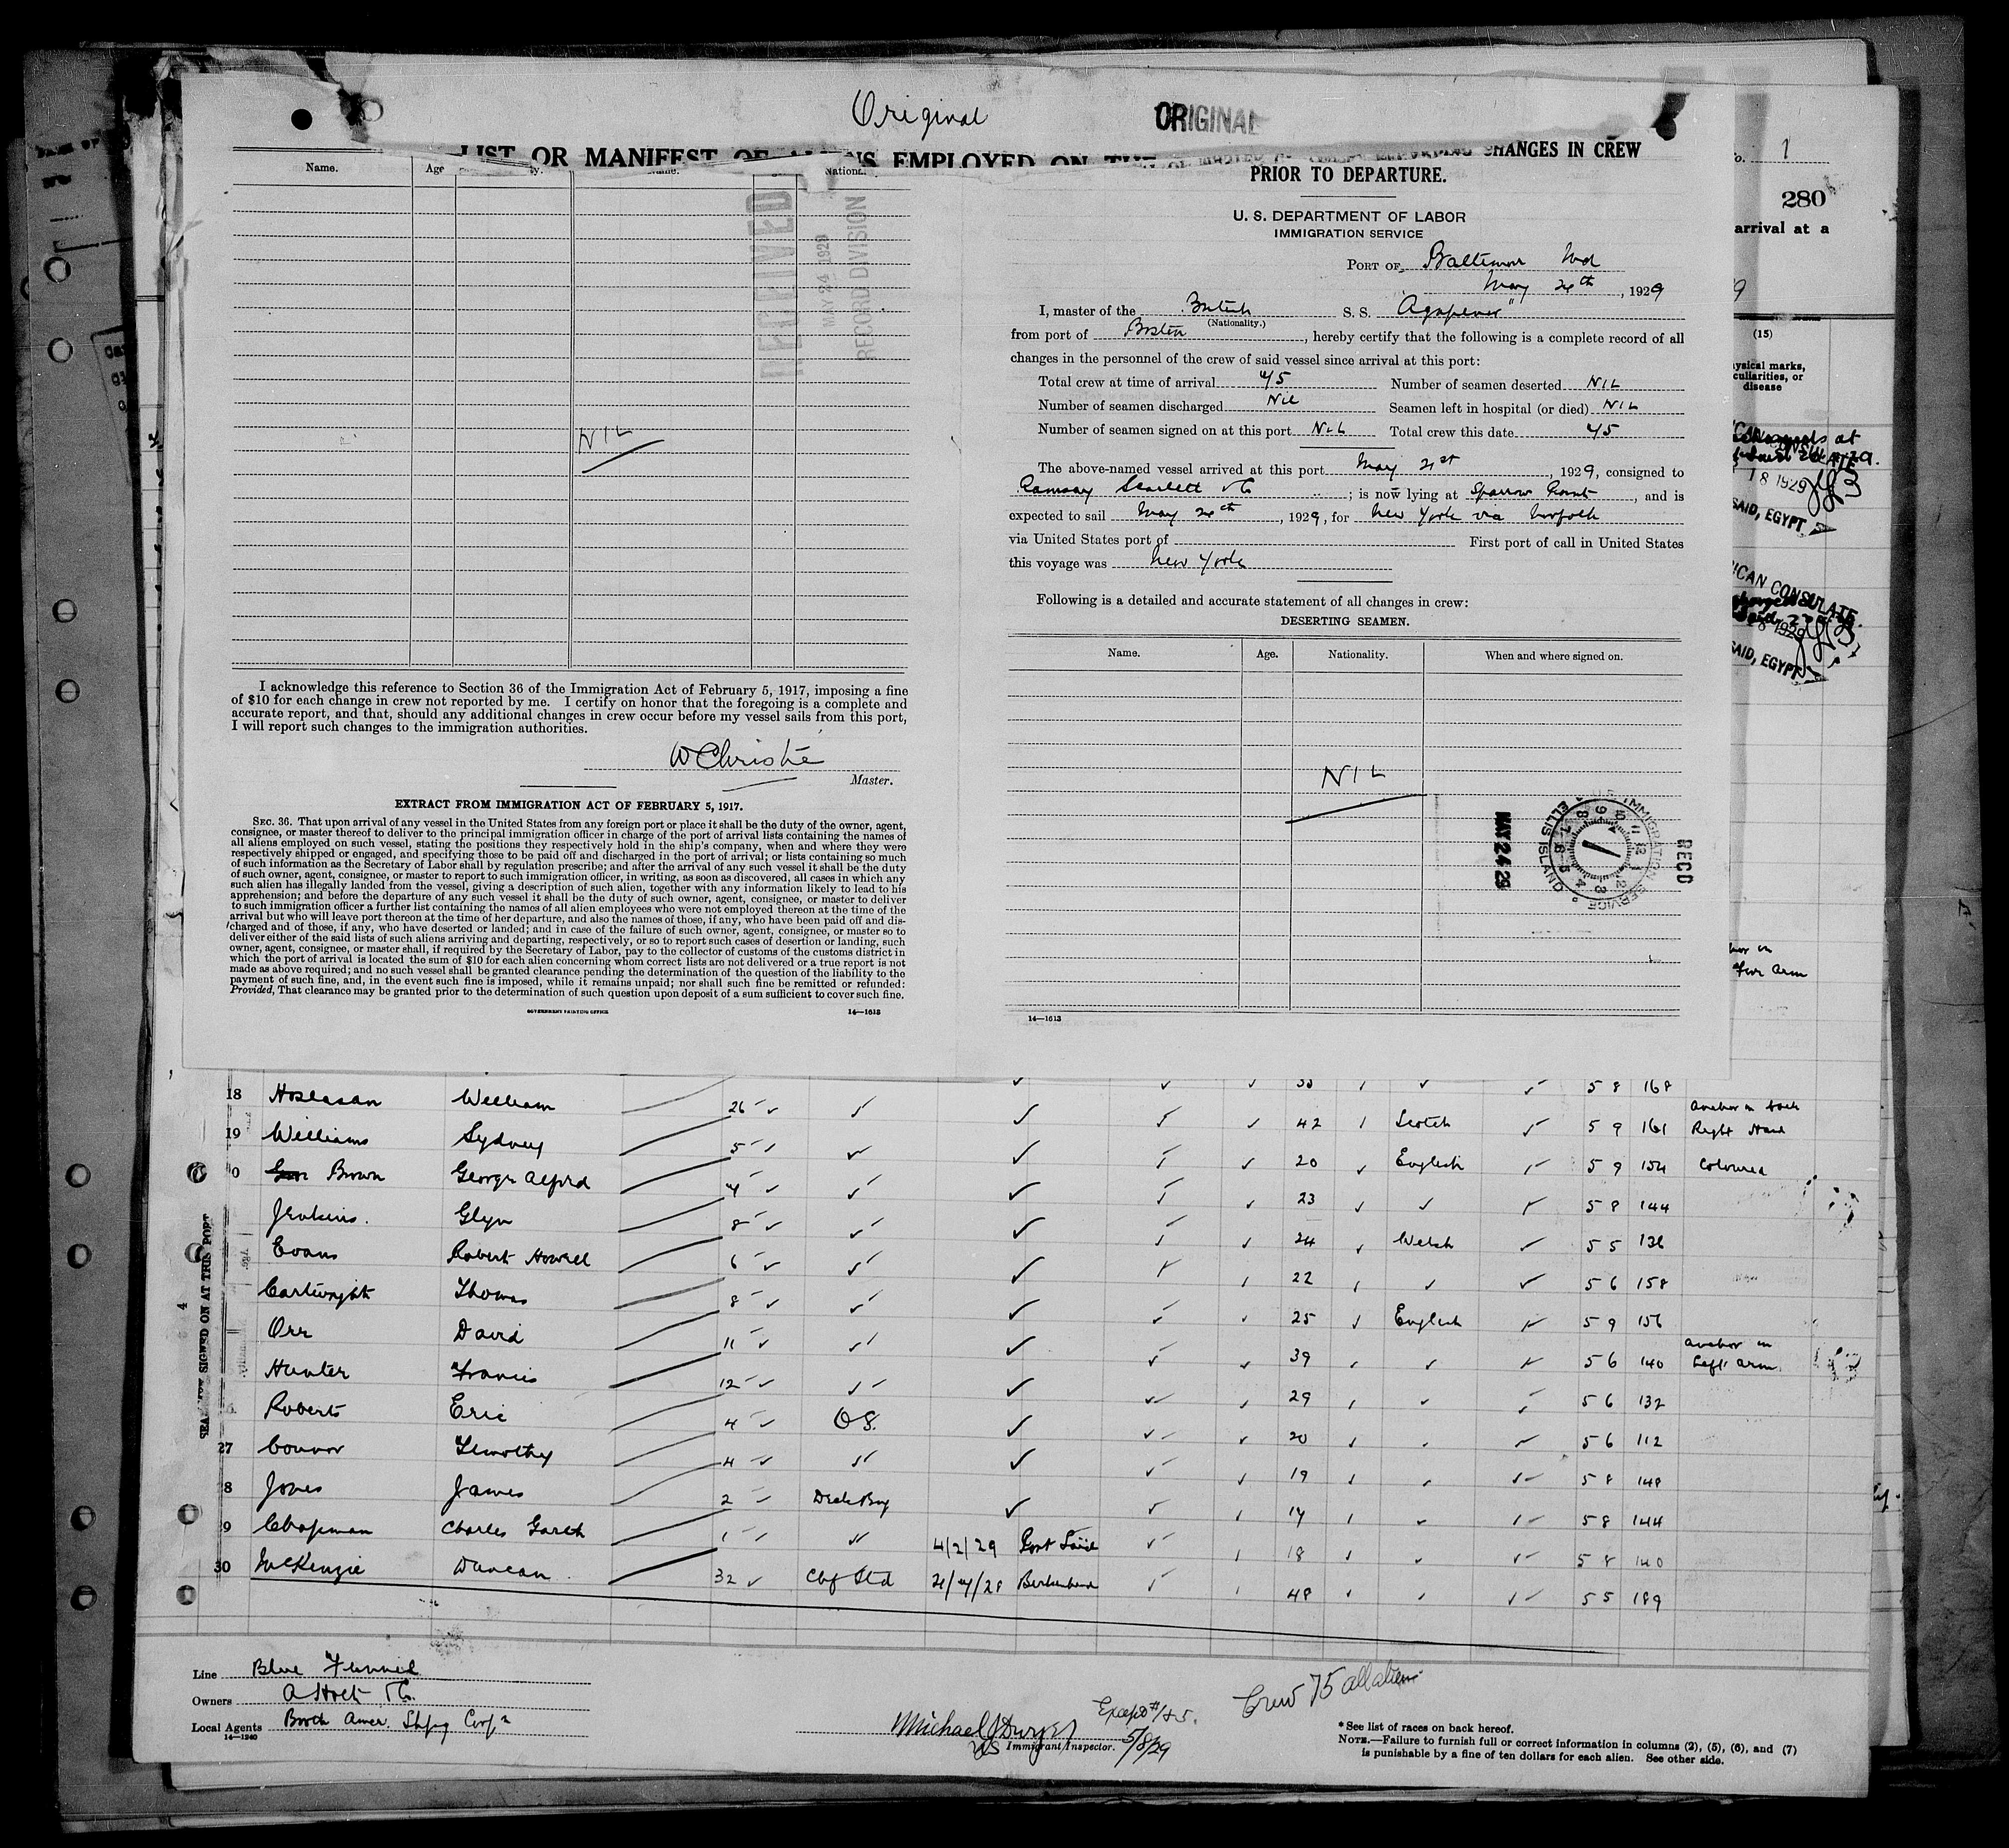 Original
ORIGINAL
LIST OR MANIFEST OF ALIENS EMPLOYED ON THE
CHANGES IN CREW
PRIOR TO DEPARTURE.
Name. Age
U. S. DEPARTMENT OF LABOR
IMMIGRATION SERVICE
PORT OF Baltimore Md
May 24th, 1929
I, master of the British S. S. "Agapenor"
(Nationality.)
from port of Boston, hereby certify that the following is a complete record of all
changes in the personnel of the crew of said vessel since arrival at this port:
Total crew at time of arrival 45 Number of seamen deserted NIL
Number of seamen discharged Nil Seamen left in hospital (or died) NIL
Number of seamen signed on at this port NIL Total crew this date 45
The above-named vessel arrived at this port May 21st, 1929, consigned to
Ramsay Scarlett & Co; is now lying at Sparrow Point, and is
expected to sail May 24th, 1929, for New York via Norfolk
via United States port of First port of call in United States
this voyage was New York
Following is a detailed and accurate statement of all changes in crew:
DESERTING SEAMEN.
Name. Age. Nationality. When and where signed on.
NIL
RECD
MAY 24 29
IMMIGRATION SERVICE
ELLIS ISLAND
14—1613
RECEIVED
MAY 24 1929
RECORD DIVISION
NIL
I acknowledge this reference to Section 36 of the Immigration Act of February 5, 1917, imposing a fine
of $10 for each change in crew not reported by me. I certify on honor that the foregoing is a complete and
accurate report, and that, should any additional changes in crew occur before my vessel sails from this port,
I will report such changes to the immigration authorities.
W Christie
Master.
EXTRACT FROM IMMIGRATION ACT OF FEBRUARY 5, 1917.
SEC. 36. That upon arrival of any vessel in the United States from any foreign port or place it shall be the duty of the owner, agent,
consignee, or master thereof to deliver to the principal immigration officer in charge of the port of arrival lists containing the names of
all aliens employed on such vessel, stating the positions they respectively hold in the ship's company, when and where they were
respectively shipped or engaged, and specifying those to be paid off and discharged in the port of arrival; or lists containing so much
of such information as the Secretary of Labor shall by regulation prescribe; and after the arrival of any such vessel it shall be the duty
of such owner, agent, consignee, or master to report to such immigration officer, in writing, as soon as discovered, all cases in which any
such alien has illegally landed from the vessel, giving a description of such alien, together with any information likely to lead to his
apprehension; and before the departure of any such vessel it shall be the duty of such owner, agent, consignee, or master to deliver
to such immigration officer a further list containing the names of all alien employees who were not employed thereon at the time of the
arrival but who will leave port thereon at the time of her departure, and also the names of those, if any, who have been paid off and dis-
charged and of those, if any, who have deserted or landed; and in case of the failure of such owner, agent, consignee, or master so to
deliver either of the said lists of such aliens arriving and departing, respectively, or so to report such cases of desertion or landing, such
owner, agent, consignee, or master shall, if required by the Secretary of Labor, pay to the collector of customs of the customs district in
which the port of arrival is located the sum of $10 for each alien concerning whom correct lists are not delivered or a true report is not
made as above required; and no such vessel shall be granted clearance pending the determination of the question of the liability to the
payment of such fine, and, in the event such fine is imposed, while it remains unpaid; nor shall such fine be remitted or refunded:
Provided, That clearance may be granted prior to the determination of such question upon deposit of a sum sufficient to cover such fine.
GOVERNMENT PRINTING OFFICE 14—1613
1
280
arrival at a
(15)
ysical marks,
culiarities, or
disease
18 1929
SAID, EGYPT
ICAN CONSULATE
SAID, EGYPT
Fore arm
5 8 168
18 William 26
42 Scotch 5 9 161 Anchor on back Right Hand
19 Williams Sydney 5
20 English 5 9 154 Coloured
0 Brown George Alfred 4
23 5 8 144
Jenkins. Glyn 8
24 Welsh 5 5 136
Evans Robert Howell 6
22 5 6 158
Cartwright Thomas 8
25 English 5 9 156
Orr David 11
39 5 6 140 Anchor on Left arm
Hunter Francis 12
29 5 6 132
Roberts Eric 4 OS.
20 5 6 112
27 Connor Timothy 4
19 5 8 148
8 Jones James 2 Deck Boy
17 5 8 144
9 Chapman Charles Gareth 1 4/2/29 Port Said
18 5 8 140
30 McKenzie Duncan 32 Chf Std 21/4/28 Birkenhead
48 5 5 189
SIGNED ON AT THIS PORT
Line Blue Funnel
Owners A Holt & Co.
Local Agents Booth Amer. Shpg Corpn
14—1240
Michael J Dwyer
US Immigrant Inspector. 5/8/29
Except # 1 & 5.
Crew 75 all aliens
* See list of races on back hereof.
NOTE.—Failure to furnish full or correct information in columns (2), (5), (6), and (7)
is punishable by a fine of ten dollars for each alien. See other side.